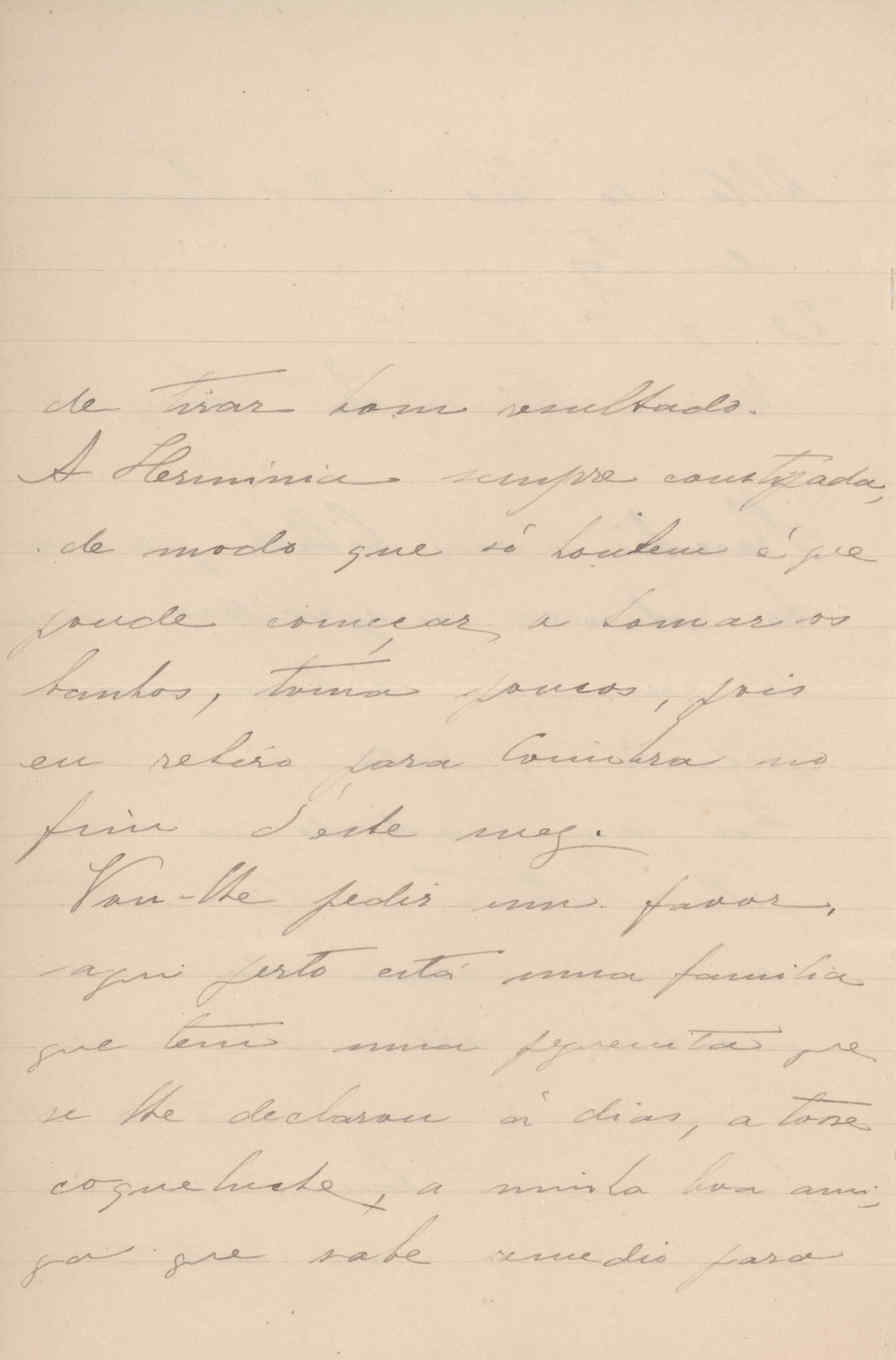 de tirar bom resultado.
A Herminia sempre constipada,
de modo que só hontem é que
poude começar a tomar os
banhos, toma poucos, pois
eu retiro para Coimbra no
fim d'este mez.
Vou-lhe pedir um favor,
aqui perto está uma familia
que tem uma pequenita que
se lhe declarou á dias, a tosse
coqueluche, a minha boa ami-
ga que sabe remedio para